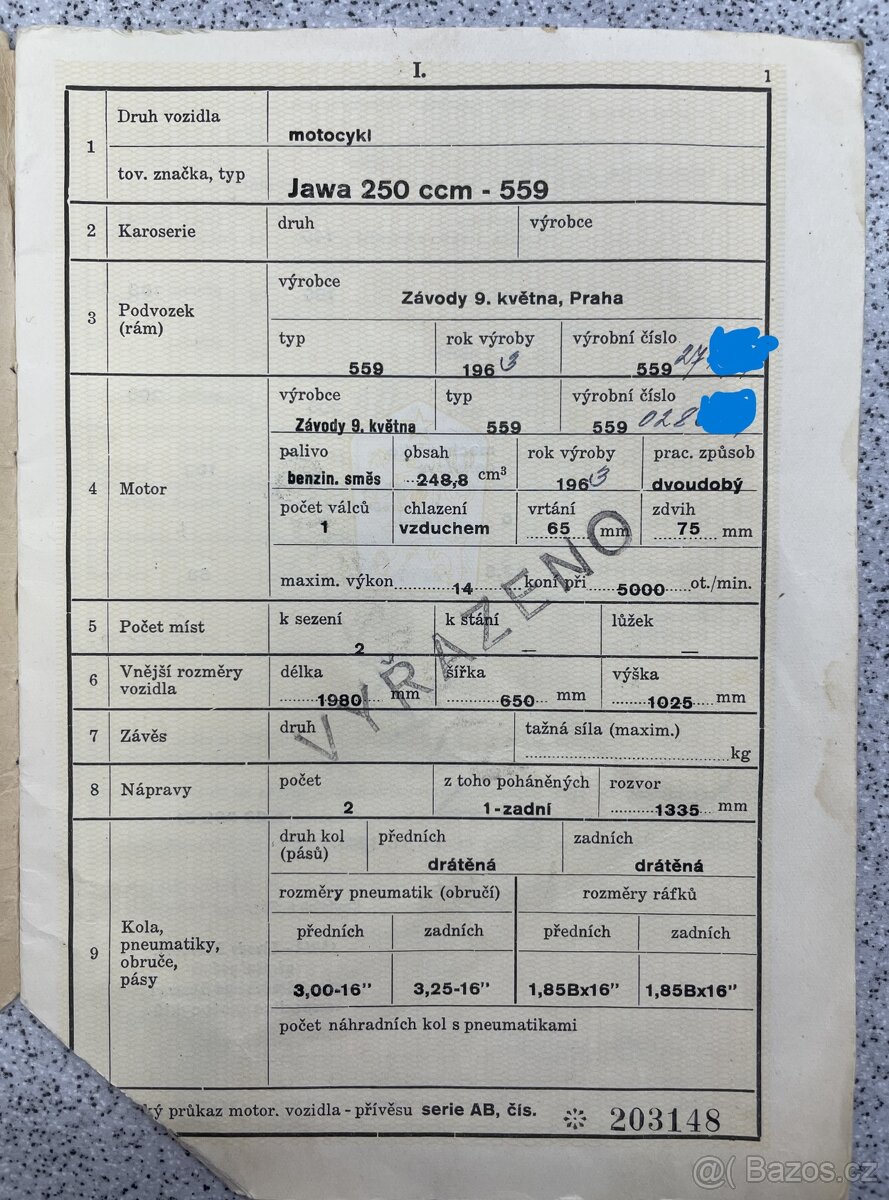 I.
1
1
Druh vozidla
motocykl
tov. značka, typ
Jawa 250 ccm - 559
2
Karoserie
druh
výrobce
3
Podvozek
(rám)
výrobce
Závody 9. května, Praha
typ
559
rok výroby
1963
výrobní číslo
559 27
4
Motor
výrobce
Závody 9. května
typ
559
výrobní číslo
559 028
palivo
benzin. směs
obsah
248,8 cm³
rok výroby
1963
prac. způsob
dvoudobý
počet válců
1
chlazení
vzduchem
vrtání
65 mm
zdvih
75 mm
maxim. výkon 14 koní při 5000 ot./min.
VYŘAZENO
5
Počet míst
k sezení
2
k stání
—
lůžek
—
6
Vnější rozměry
vozidla
délka
1980 mm
šířka
650 mm
výška
1025 mm
7
Závěs
druh
tažná síla (maxim.)
kg
8
Nápravy
počet
2
z toho poháněných
1-zadní
rozvor
1335 mm
9
Kola,
pneumatiky,
obruče,
pásy
druh kol
(pásů)
předních
drátěná
zadních
drátěná
rozměry pneumatik (obručí)
rozměry ráfků
předních
zadních
předních
zadních
3,00-16”
3,25-16”
1,85Bx16”
1,85Bx16”
počet náhradních kol s pneumatikami
průkaz motor. vozidla - přívěsu serie AB, čís. 203148
@( Bazos.cz